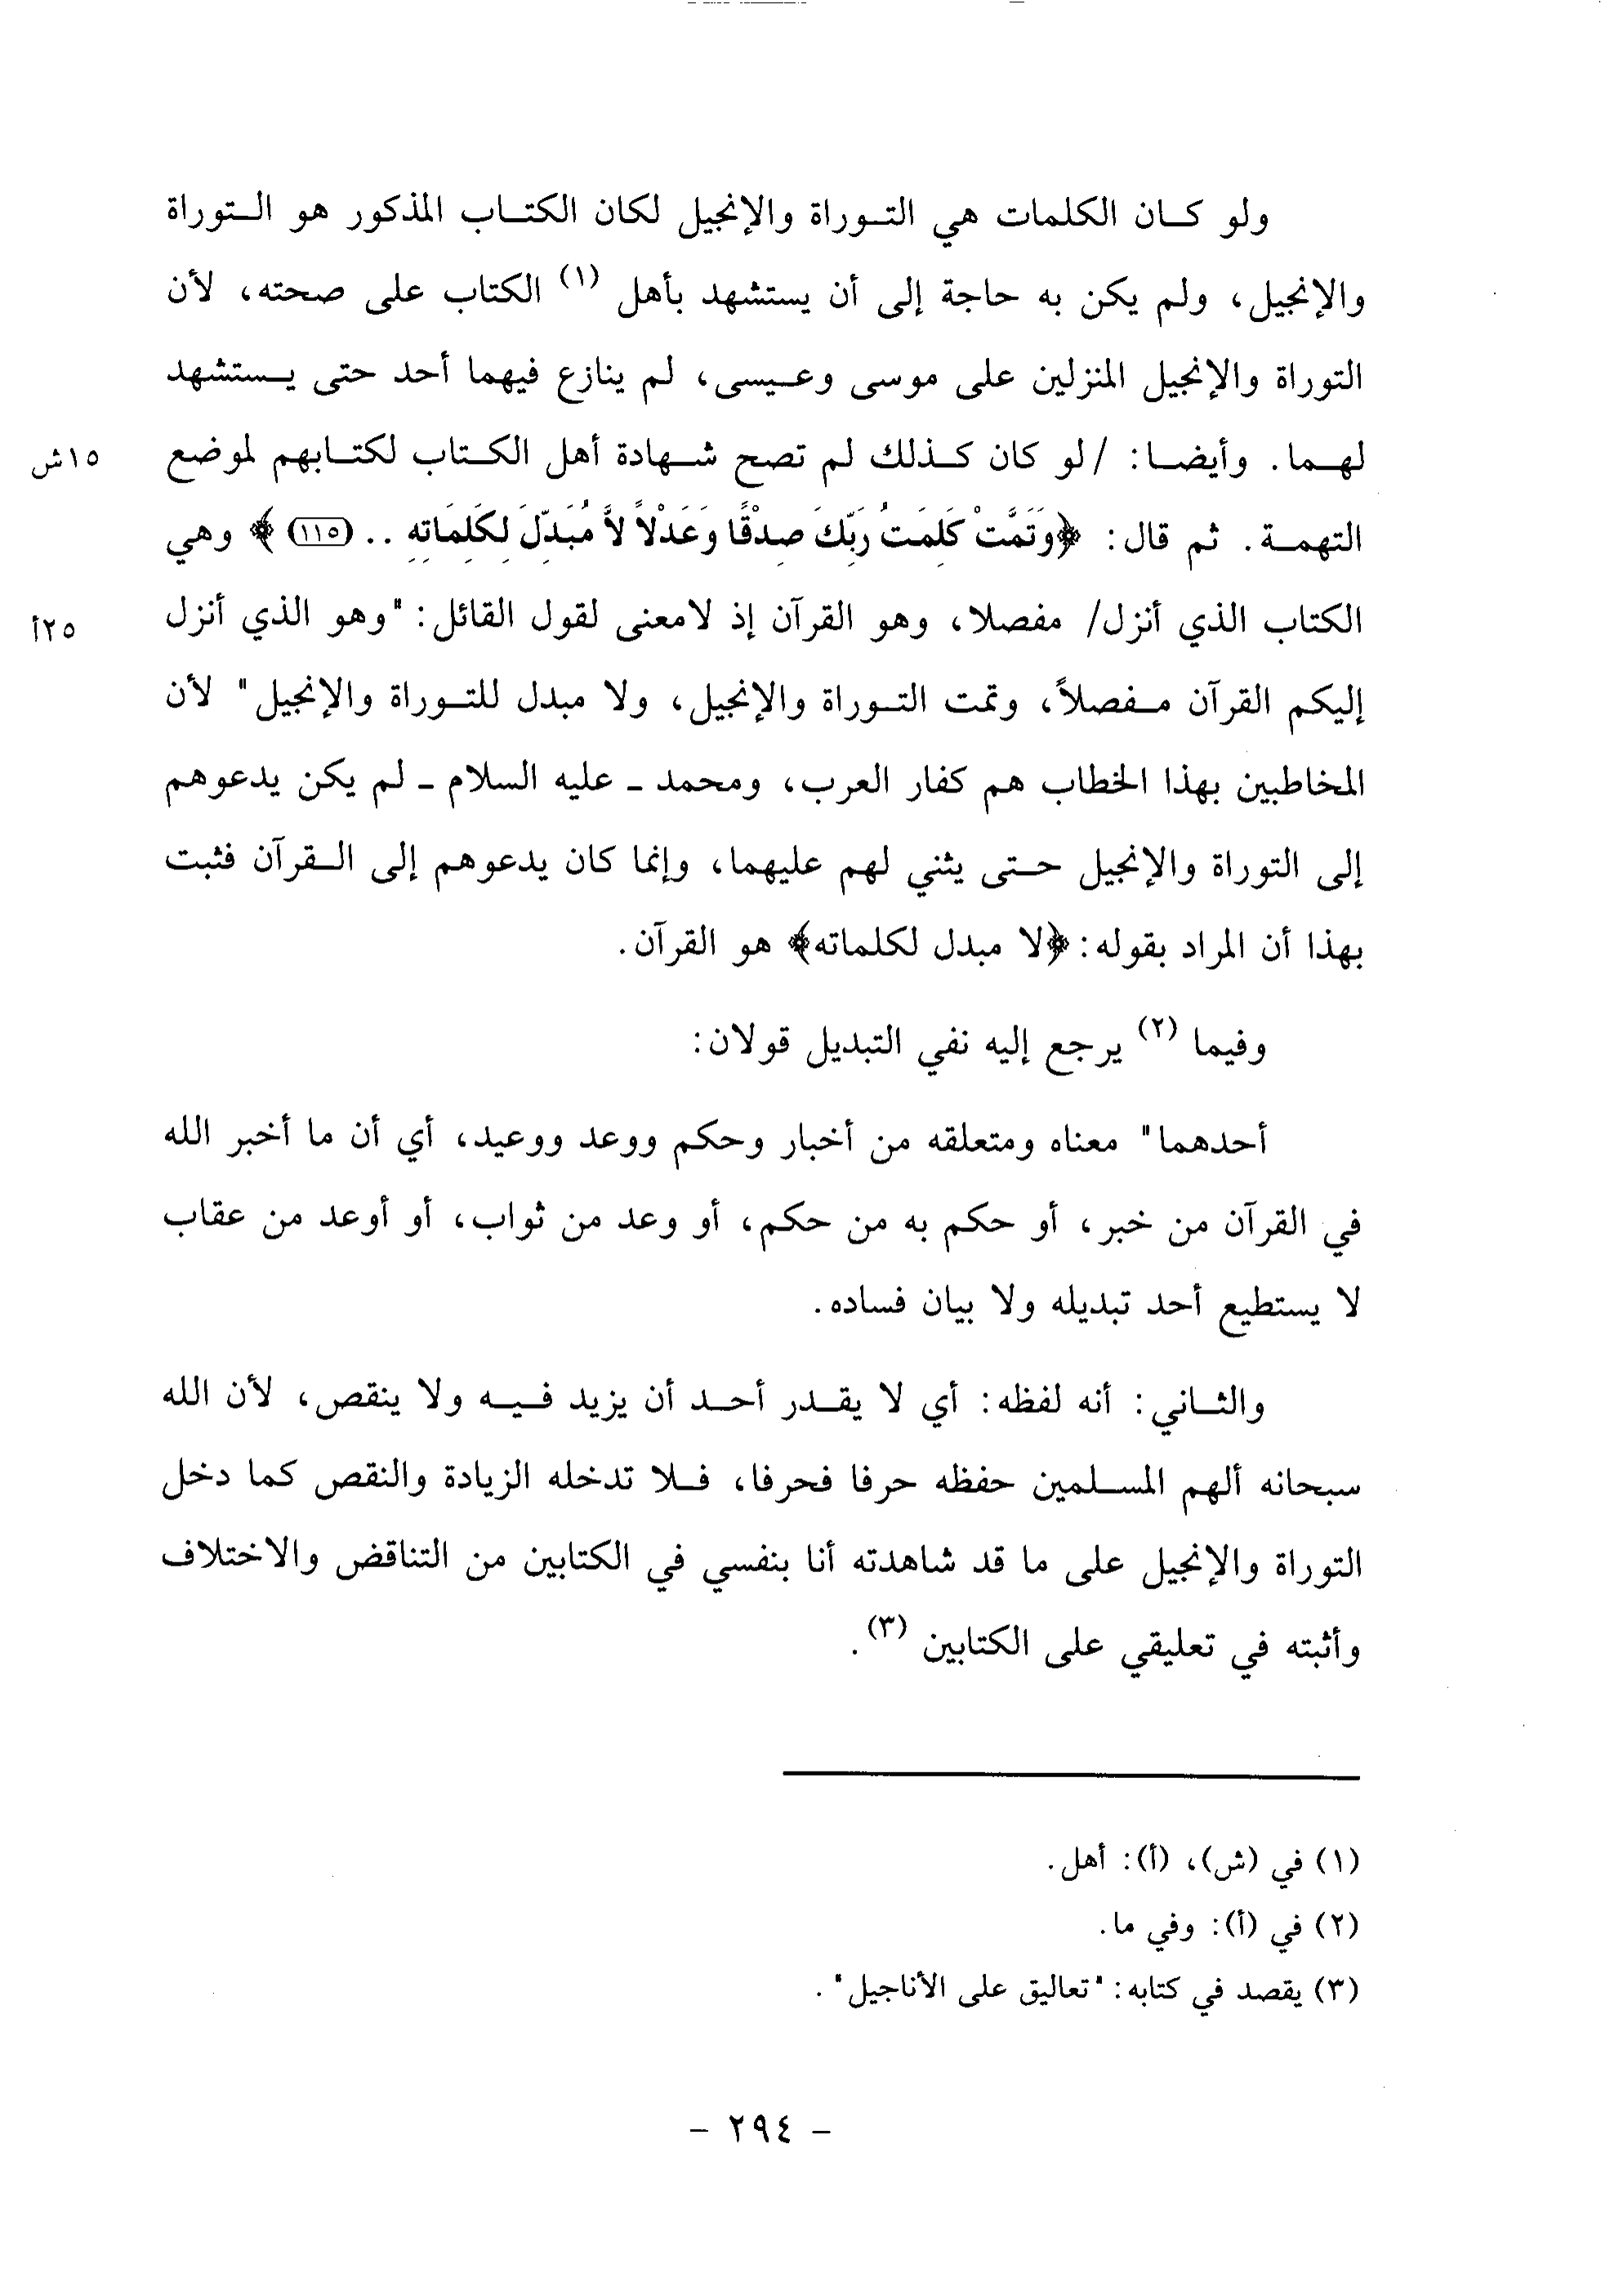 ولو كان الكلمات هي التوراة والإنجيل لكان الكتاب المذكور هو التوراة
والإنجيل، ولم يكن به حاجة إلى أن يستشهد بأهل (١) الكتاب على صحته، لأن
التوراة والإنجيل المنزلين على موسى وعيسى، لم ينازع فيهما أحد حتى يستشهد
لهما. وأيضا: /لو كان كذلك لم تصح شهادة أهل الكتاب لكتابهم لموضع
١٥ش
التهمة. ثم قال: ﴿وَتَمَّتْ كَلِمَتُ رَبِّكَ صِدْقًا وَعَدْلاً لاَّ مُبَدِّلَ لِكَلِمَاتِهِ .. (١١٥)﴾ وهي
الكتاب الذي أنزل/ مفصلا، وهو القرآن إذ لامعنى لقول القائل: "وهو الذي أنزل
٢٥أ
إليكم القرآن مفصلاً، وتمت التوراة والإنجيل، ولا مبدل للتوراة والإنجيل" لأن
المخاطبين بهذا الخطاب هم كفار العرب، ومحمد ـ عليه السلام ـ لم يكن يدعوهم
إلى التوراة والإنجيل حتى يثني لهم عليهما، وإنما كان يدعوهم إلى القرآن فثبت
بهذا أن المراد بقوله: ﴿لا مبدل لكلماته﴾ هو القرآن.
وفيما (٢) يرجع إليه نفي التبديل قولان:
أحدهما" معناه ومتعلقه من أخبار وحكم ووعد ووعيد، أي أن ما أخبر الله
في القرآن من خبر، أو حكم به من حكم، أو وعد من ثواب، أو أوعد من عقاب
لا يستطيع أحد تبديله ولا بيان فساده.
والثاني: أنه لفظه: أي لا يقدر أحد أن يزيد فيه ولا ينقص، لأن الله
سبحانه ألهم المسلمين حفظه حرفا فحرفا، فلا تدخله الزيادة والنقص كما دخل
التوراة والإنجيل على ما قد شاهدته أنا بنفسي في الكتابين من التناقض والاختلاف
وأثبته في تعليقي على الكتابين (٣).
(١) في (ش)، (أ): أهل.
(٢) في (أ): وفي ما.
(٣) يقصد في كتابه: "تعاليق على الأناجيل".
- ٢٩٤ -